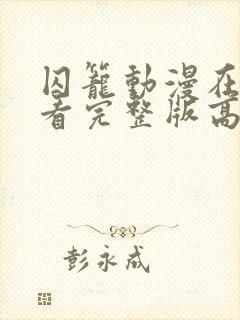 囚籠動漫在
看完整版高
彭永成